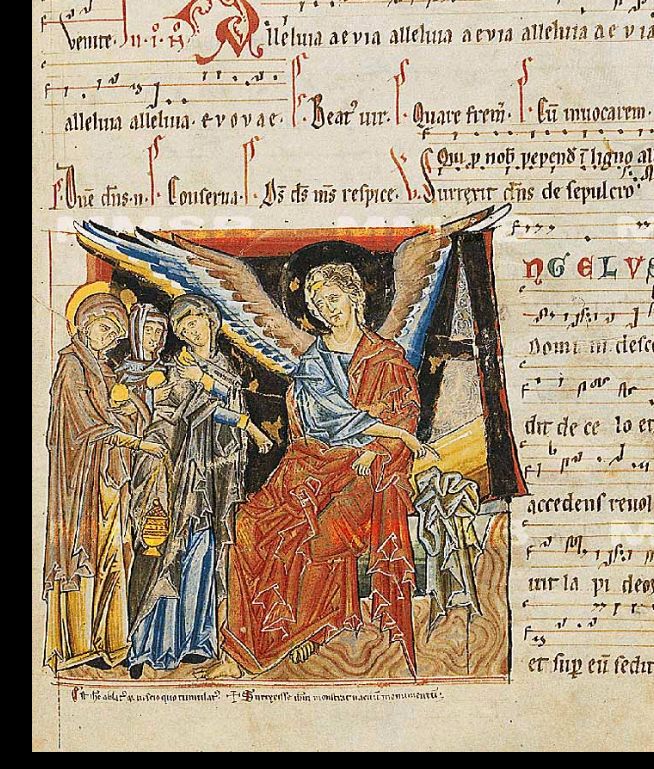 venite. In. i. N̄ Alleluia aevia alleluia aevia alleluia ae via
alleluia alleluia. evovae. Beat' uir. Quare frem̄. Cū inuocarem.
Qui p nob̄ pepend ī ligno al
Dn̄e dn̄s n̄. Conserua. Ds̄ ds̄ ms̄ respice. V Surrexit dn̄s de sepulcro
NGELVS
Domi ni desce
dit de ce lo et
accedens reuol
uit la pi dem
et sup eū sedit
Surrexisse monstrat uacuū monumentū.